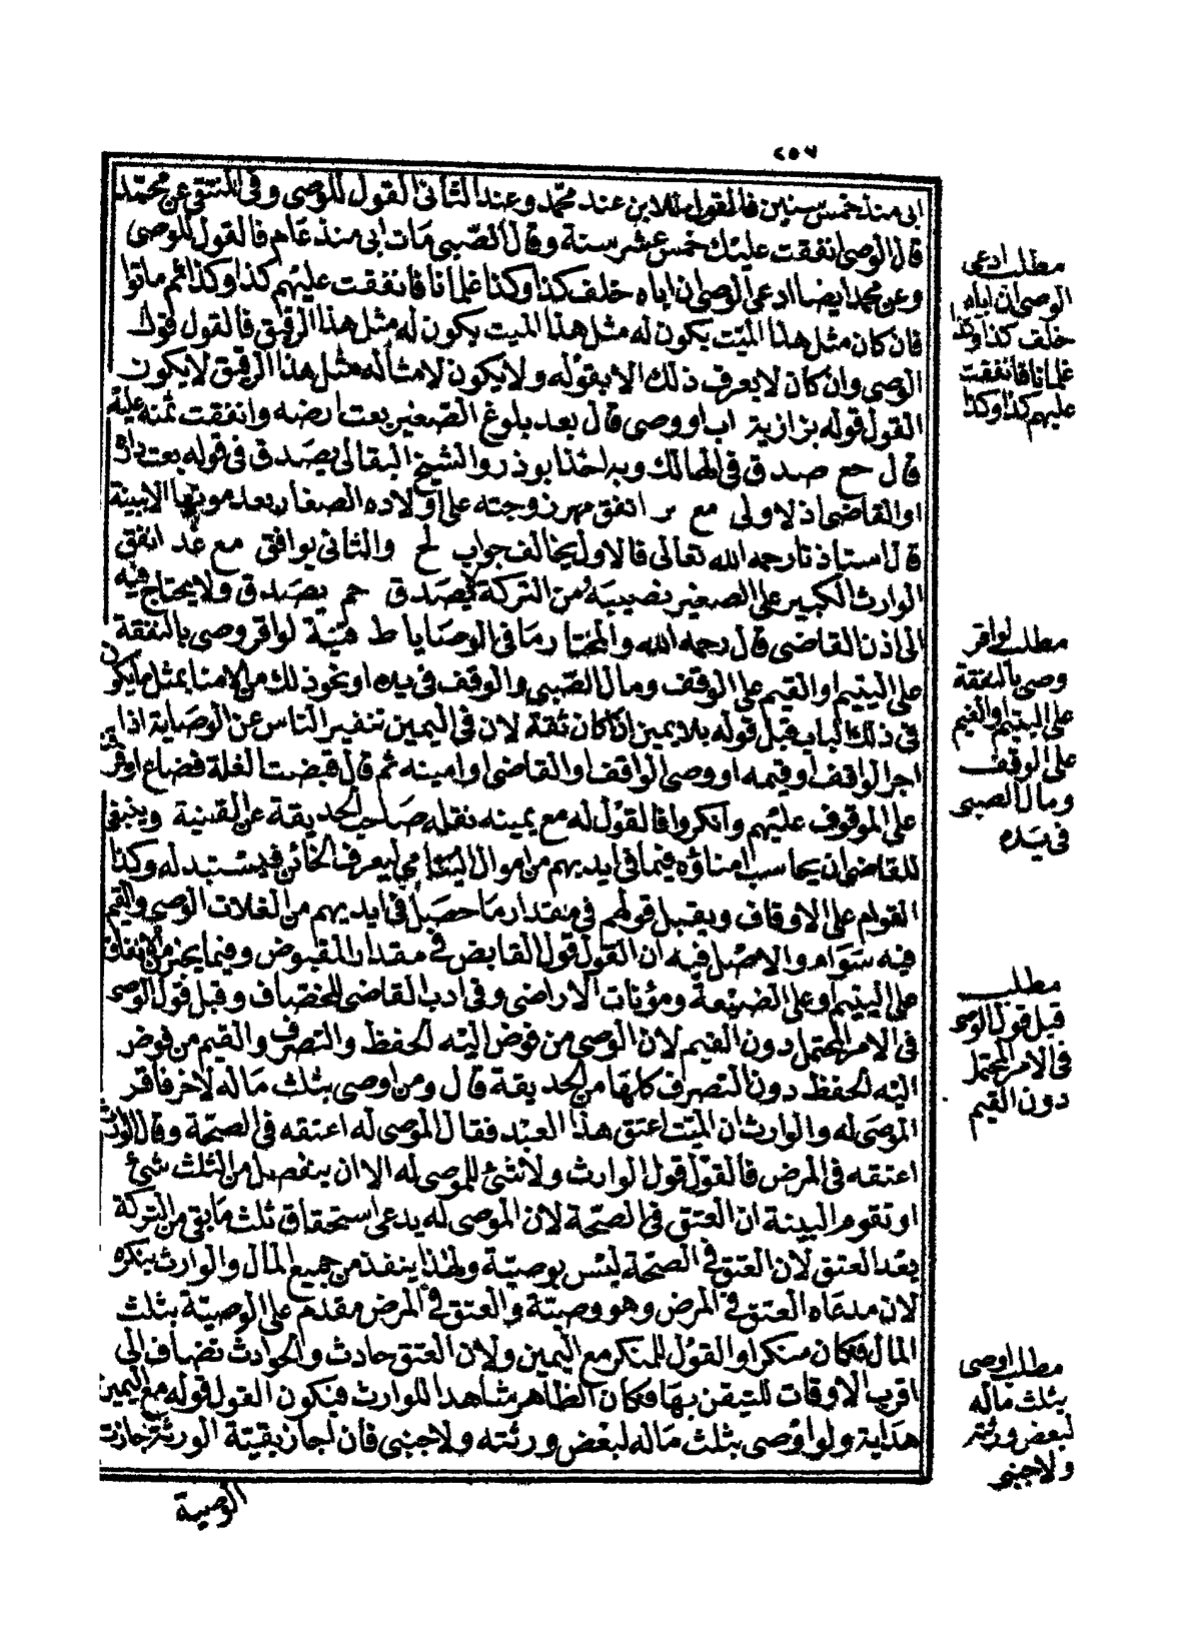 ٢٥٧
ابى منذ خمس سنين فالقول للابن عند محمد وعند الثانى القول للوصى وفى المنتقى عن محمد
قال الوصى انفقت عليك خمس عشر سنة وقال الصبى مات ابى منذ عام فالقول للوصى
وعن محمد ايضا ادعى الوصى ان اباه خلف كذا وكذا غلمانا فانفقت عليهم كذا وكذا ثم ماتوا
فان كان مثل هذا الميت يكون له مثل هذا الميت يكون له مثل هذا الرقيق فالقول قول
الوصى وان كان لا يعرف ذلك الا بقوله ولا يكون لامثاله مثل هذا الرقيق لا يكون
القول قوله بزازية اب او وصى قال بعد بلوغ الصغير بعت ارضه وانفقت ثمنه عليه
قال حع صدق فى الهالك وبه اخذ ابو ذر والشيخ البقالى يصدق فى قوله بعت
او القاضى اذ لاولى مع بر انفق مهر زوجته على اولاده الصغار بعد موتها الابينة
قال استاذنا رحمه الله تعالى فالاول يخالف جواب لح والثانى يوافق مع عد انفق
الوارث الكبير على الصغير نصيبه من التركة يصدق حم يصدق ولا يحتاج فيه
الى اذن القاضى قال رحمه الله والمختار ما فى الوصايا ط قنية لو اقر وصى بالنفقة
على اليتيم او القيم على الوقف ومال الصبى والوقف فى يده او نحو ذلك من الامنا بمثل ما يكون
فى ذلك الباب قبل قوله بلا يمين اذا كان ثقة لان فى اليمين تنفير الناس عن الوصاية اذا
اجر الواقف او قيمه او وصى الواقف او القاضى او امينه ثم قال قبضت الغلة فضاع او فرقت
على الموقوف عليهم وانكروا فالقول له مع يمينه نقله صاحب الحديقة عن القنية وينبغى
للقاضى ان يحاسب امناؤه فيما فى ايديهم من اموال اليتامى ليعرف الخائن فيستبدله وكذا
القوام على الاوقاف ويقبل قولهم فى مقدار ما حصل فى ايديهم من الغلات الوصى والقيم
فيه سواء والاصل فيه ان القول قول القابض فى مقدار المقبوض وفيما يخبر من الانفاق
على اليتيم او على الضيعة ومؤنات الاراضى وفى ادب القاضى للخصاف وقبل قول الوصى
فى الامر المحتمل دون القيم لان الوصى من فوض اليه الحفظ والتصرف والقيم من فوض
اليه الحفظ دون التصرف كلها من الحديقة قال ومن اوصى بثلث ماله لاخر فاقر
الموصى له والوارث ان الميت اعتق هذا العبد فقال الموصى له اعتقه فى الصحة وقال الوارث
اعتقه فى المرض فالقول قول الوارث ولا شئ للموصى له الا ان يفضل من الثلث شئ
او تقوم البينة ان العتق فى الصحة لان الموصى له يدعى استحقاق ثلث ما بقى من التركة
بعد العتق لان العتق فى الصحة ليس بوصية ولهذا ينفذ من جميع المال والوارث ينكره
لان مدعاه العتق فى المرض وهو وصية والعتق فى المرض مقدم على الوصية بثلث
المال فكان منكرا والقول للمنكر مع اليمين ولان العتق حادث والحوادث تضاف الى
اقرب الاوقات للتيقن بها فكان الظاهر شاهدا للوارث فيكون القول قوله مع اليمين
هداية ولو اوصى بثلث ماله لبعض ورثته ولاجنبى فان اجاز بقية الورثة جازت
الوصية
مطلب ادعى
الوصى ان اباه
خلف كذا وكذا
غلمانا فانفقت
عليهم كذا وكذا
مطلب لو اقر
وصى بالنفقة
على اليتيم او القيم
على الوقف
ومال الصبى
فى يده
مطلب
قبل قول الوصى
فى الامر المحتمل
دون القيم
مطلب اوصى
بثلث ماله
لبعض ورثته
ولاجنبى